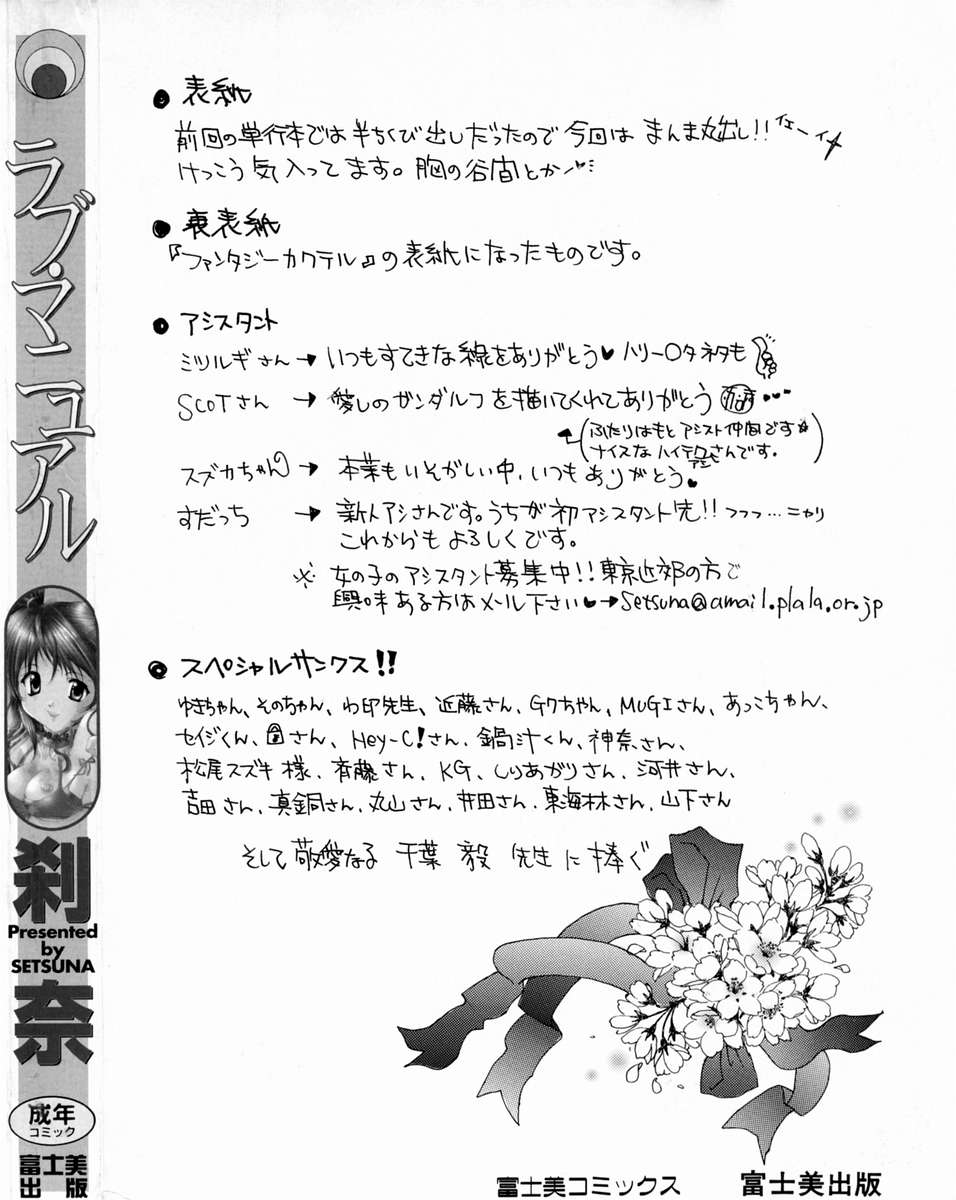 ラブ・マニュアル
刹奈
Presented
by
SETSUNA
成年
コミック
富士美
出版
● 表紙
前回の単行本では半ちくび出しだったので今回は まんま丸出し!! イエーイ
けっこう気入ってます。胸の谷間とか
● 裏表紙
『ファンタジーカクテル』の表紙になったものです。
● アシスタント
ミツルギさん → いつもすてきな線をありがとう♥ ハリー〇タネタも
SCOTさん → 愛しのガンダルフを描いてくれてありがとう
(ふたりはもとアシスト仲間です
ナイスなハイテクアシさんです。)
スズカちゃん → 本業もいそがしい中、いつもありがとう♥
すだっち → 新人アシさんです。うちが初アシスタント先!! フフフ…ニヤリ
これからもよろしくです。
※ 女の子のアシスタント募集中!! 東京近郊の方で
興味ある方はメール下さい♥→Setsuna@amail.plala.or.jp
● スペシャルサンクス!!
ゆきちゃん、そのちゃん、わ印先生、近藤さん、Gクちゃん、MUGIさん、あっこちゃん、
セイジくん、さん、Hey-C!さん、鍋汁くん、神奈さん、
松尾スズキ様、斉藤さん、KG、しりあがりさん、河井さん、
吉田さん、真鍋さん、丸山さん、井田さん、東海林さん、山下さん
そして敬愛なる 千葉 毅 先生に捧ぐ
富士美コミックス 富士美出版